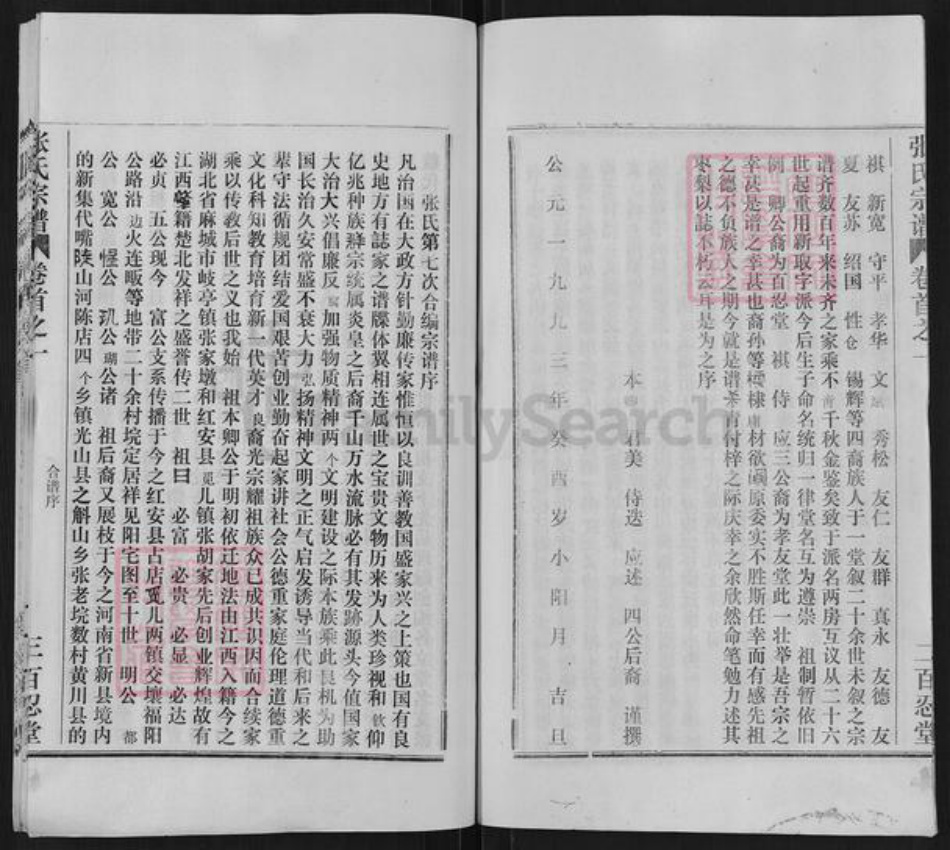 张氏宗谱 卷首之一 二 百忍堂
祺 新宽 守平 孝华 文斌 秀松 友仁 友群 真永 友德 友
夏 友苏 绍国 性仓 锡辉等四裔族人于一堂叙二十余世未叙之宗
谱齐数百年来未齐之家乘不 千秋金鉴矣致于派名两房互议从二十六
世起重用新取字派今后生子命名统归一律堂名互为遵崇 祖制暂依旧
例 卿公裔为百忍堂 祺 侍 应三公裔为孝友堂此一壮举是吾宗之
幸甚是谱之幸甚也裔孙等 棣 材欲 原委实不胜斯任幸而有感先祖
之德不负族人之期今就是谱 付梓之际庆幸之余欣然命笔勉力述其
枣梨以誌不朽云耳是为之序
本卿 君美 侍选 应述 四公后裔 谨撰
公元一九九三年癸酉岁小阳月 吉旦
张氏第七次合编宗谱序
凡治国在大政方针勤廉传家惟恒以良训善教国盛家兴之上策也国有良
史地方有誌家之谱牒体翼相连属世之宝贵文物历来为人类珍视和钦仰
亿兆种族繇宗统属炎皇之后裔千山万水流脉必有其发跡源头今值国家
大治大兴倡廉反腐加强物质精神两个文明建设之际本族乘此良机为助
国长治久安常盛不衰大力弘扬精神文明之正气启发诱导当代和后来之
辈守法循规团结爱国艰苦创业勤奋起家讲社会公德重家庭伦理道德重
文化科知教育培育新一代英才良裔光宗耀祖族众已成共识因而合续家
乘以传教后世之义也我始 祖本卿公于明初依迁地法由江西入籍今之
湖北省麻城市岐亭镇张家墩和红安县觅儿镇张胡家先后创业辉煌故有
江西 籍楚北发祥之盛誉传二世 祖曰 必富 必贵 必显 必达
必贞 五公现今 富公支系传播于今之红安县占店觅儿两镇交壤福阳
公路沿边火连畈等地带二十余村垸定居祥见阳宅图至十世 明公 都
公 宽公 惺公 玑公 瑚公诸 祖后裔又展枝于今之河南省新县境内
的新集代嘴陡山河陈店四个乡镇光山县之斛山乡张老垸数村黄川县的
张氏宗谱 卷首之一 合谱序 三 百忍堂
FamilySearch